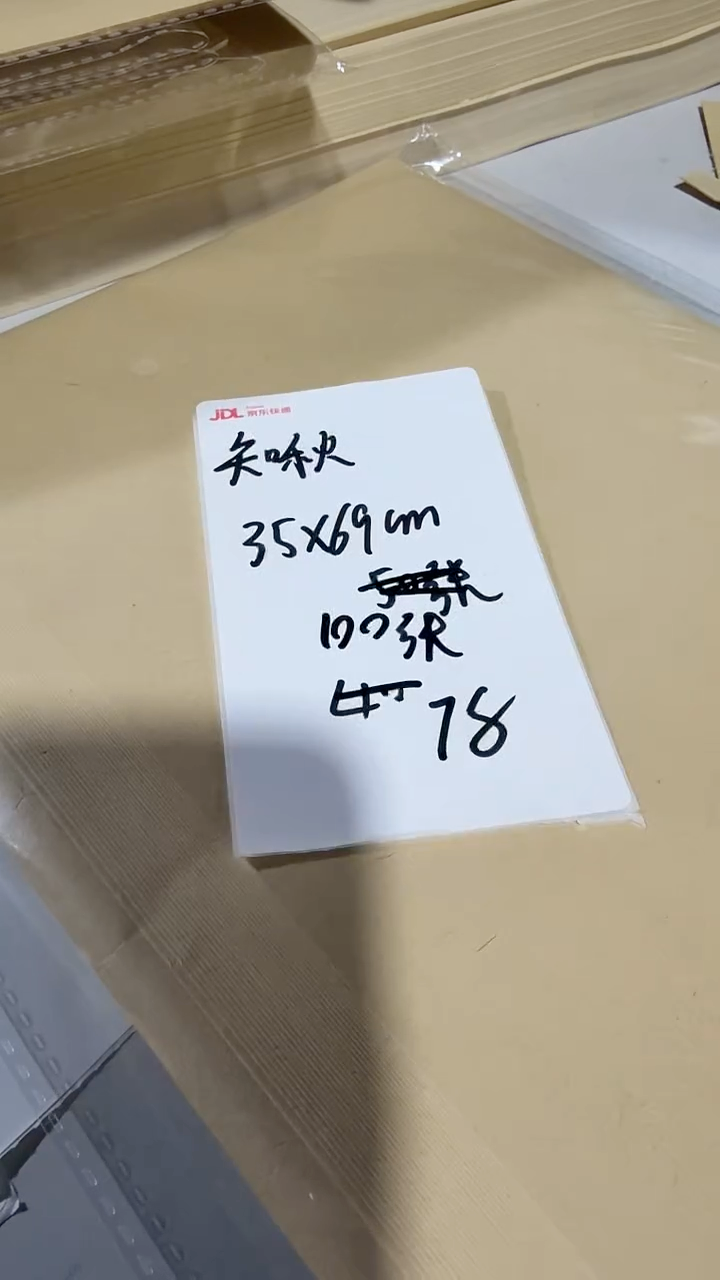 JDL 京东快递
知秋
35X69cm
100张
78